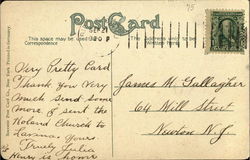 Post Card
This space may be used for
Correspondence
The Address only to be
Written Here
SEP 21
Very Pretty Card
Thank You Very
Much Send Some
more of sent the
Noland Church to
Yours
Truly Julia
Henry is home
James M. Gallagher
64 Mill Street
Newton N.J.